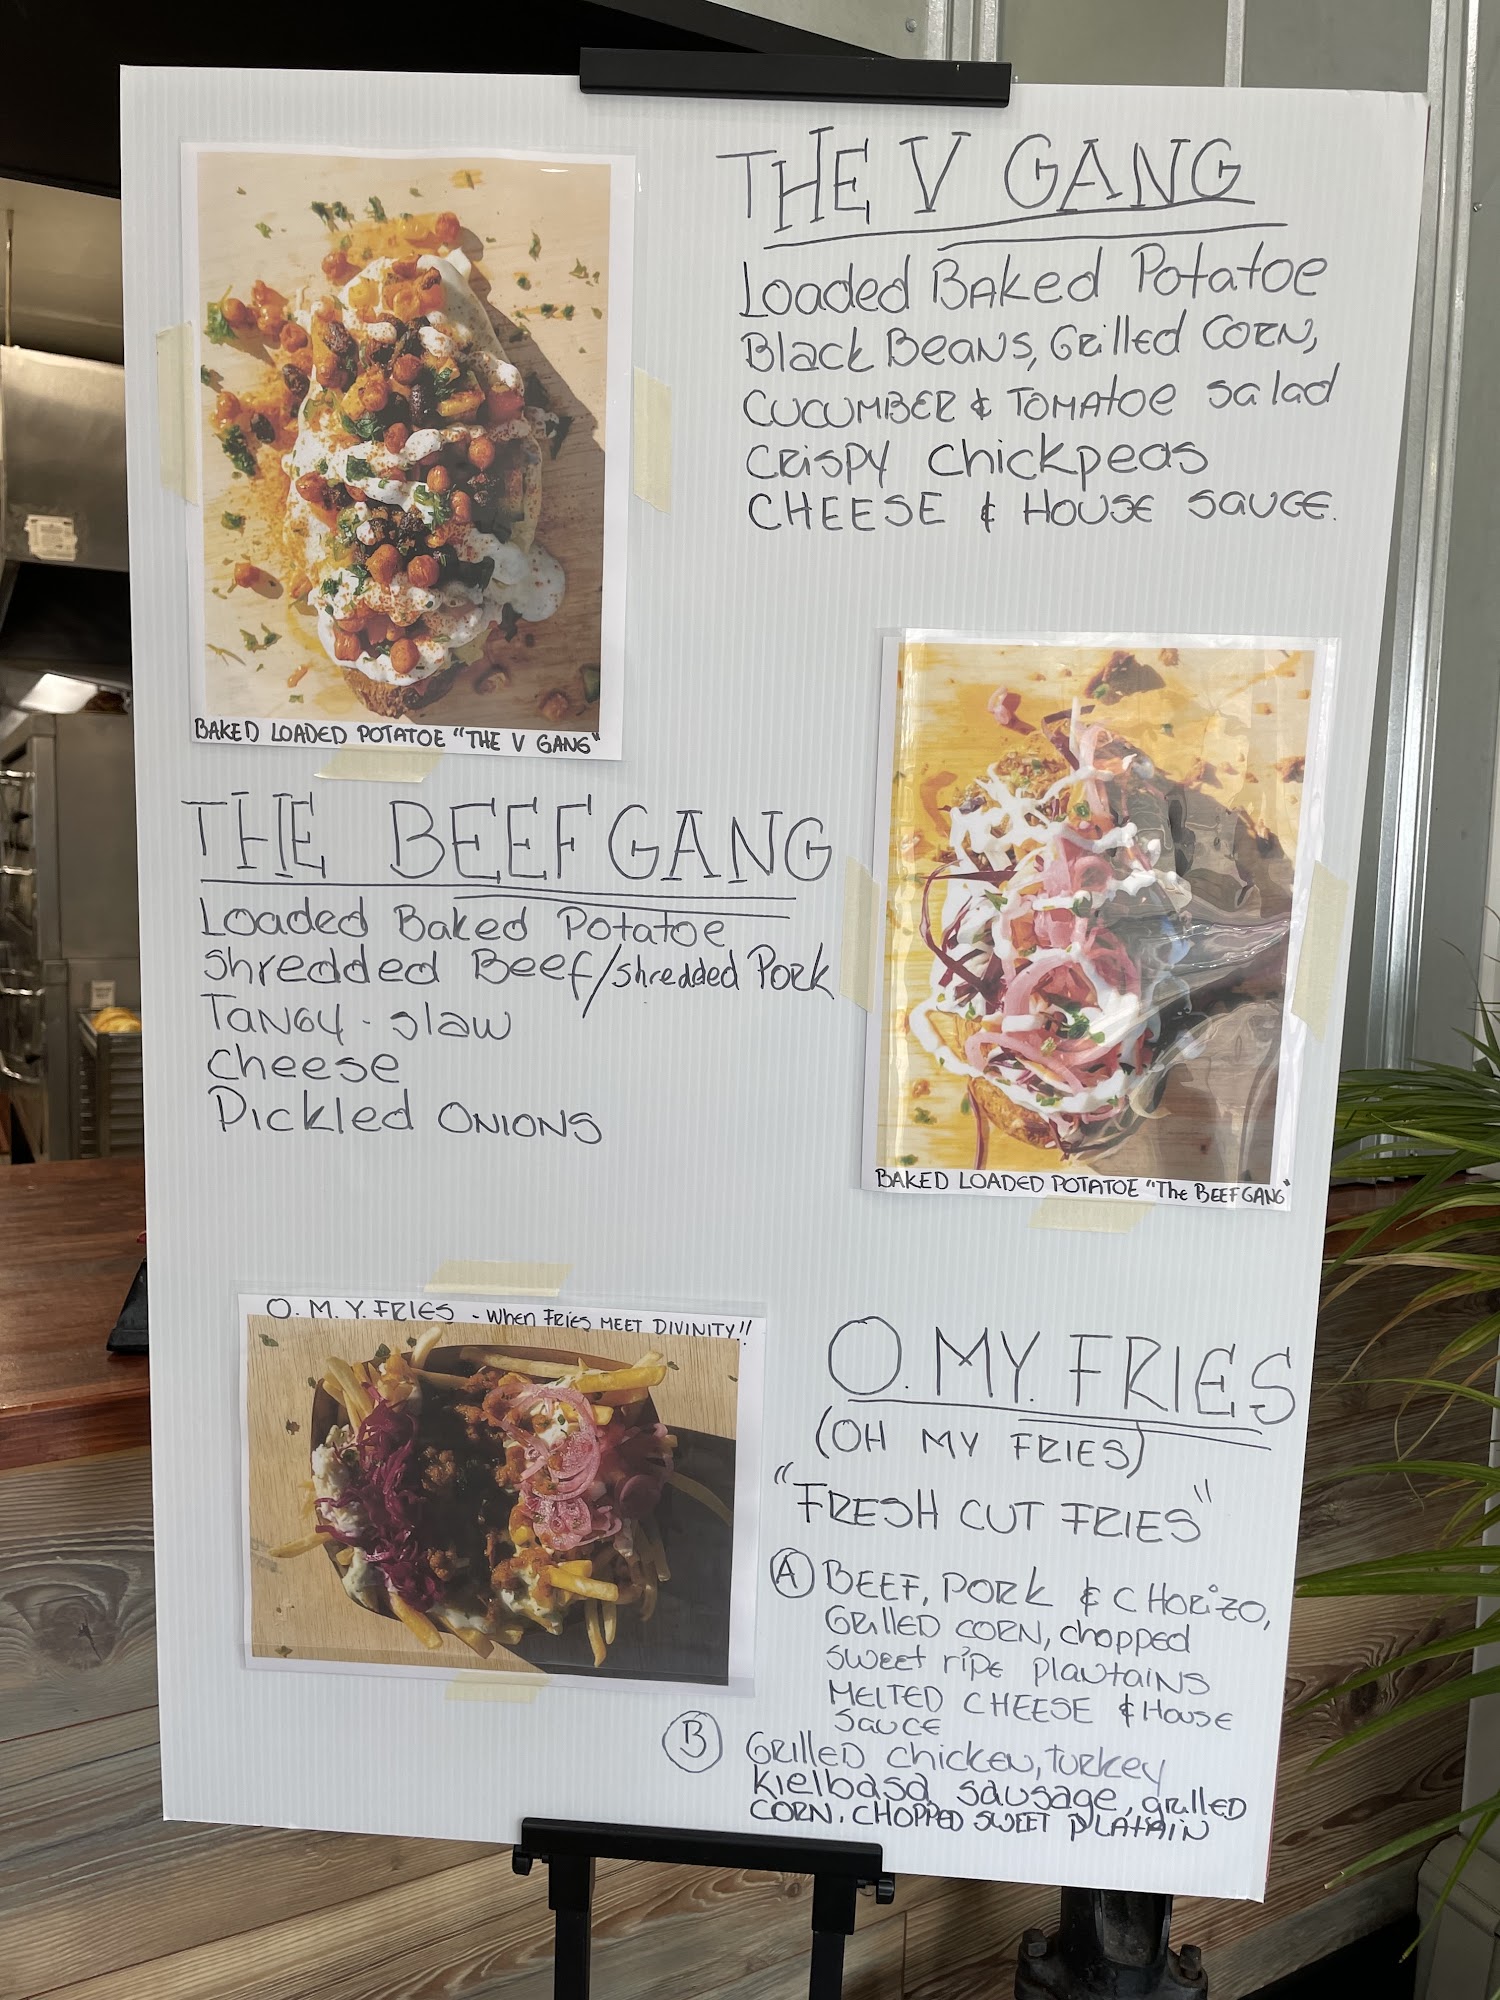 THE V GANG
Loaded Baked Potatoe
Black Beans, Grilled CORN,
CUCUMBER & TOMATOE Salad
CRISPY Chickpeas
CHEESE & HOUSE SAUCE.
BAKED LOADED POTATOE "THE V GANG"
THE BEEF GANG
Loaded Baked Potatoe
Shredded Beef/shredded Pork
TANGY - Slaw
Cheese
Pickled ONIONS
BAKED LOADED POTATOE "The BEEF GANG"
O. M. Y. FRIES - When FRIES MEET DIVINITY!!
O. MY. FRIES
(OH MY FRIES)
"FRESH CUT FRIES"
A BEEF, PORK & CHORIZO,
GRILLED CORN, chopped
SWEET ripe plantains
MELTED CHEESE & House
SAUCE
B GRILLED chicken, turkey
Kielbasa sausage, grilled
CORN. CHOPPED SWEET PLATAIN